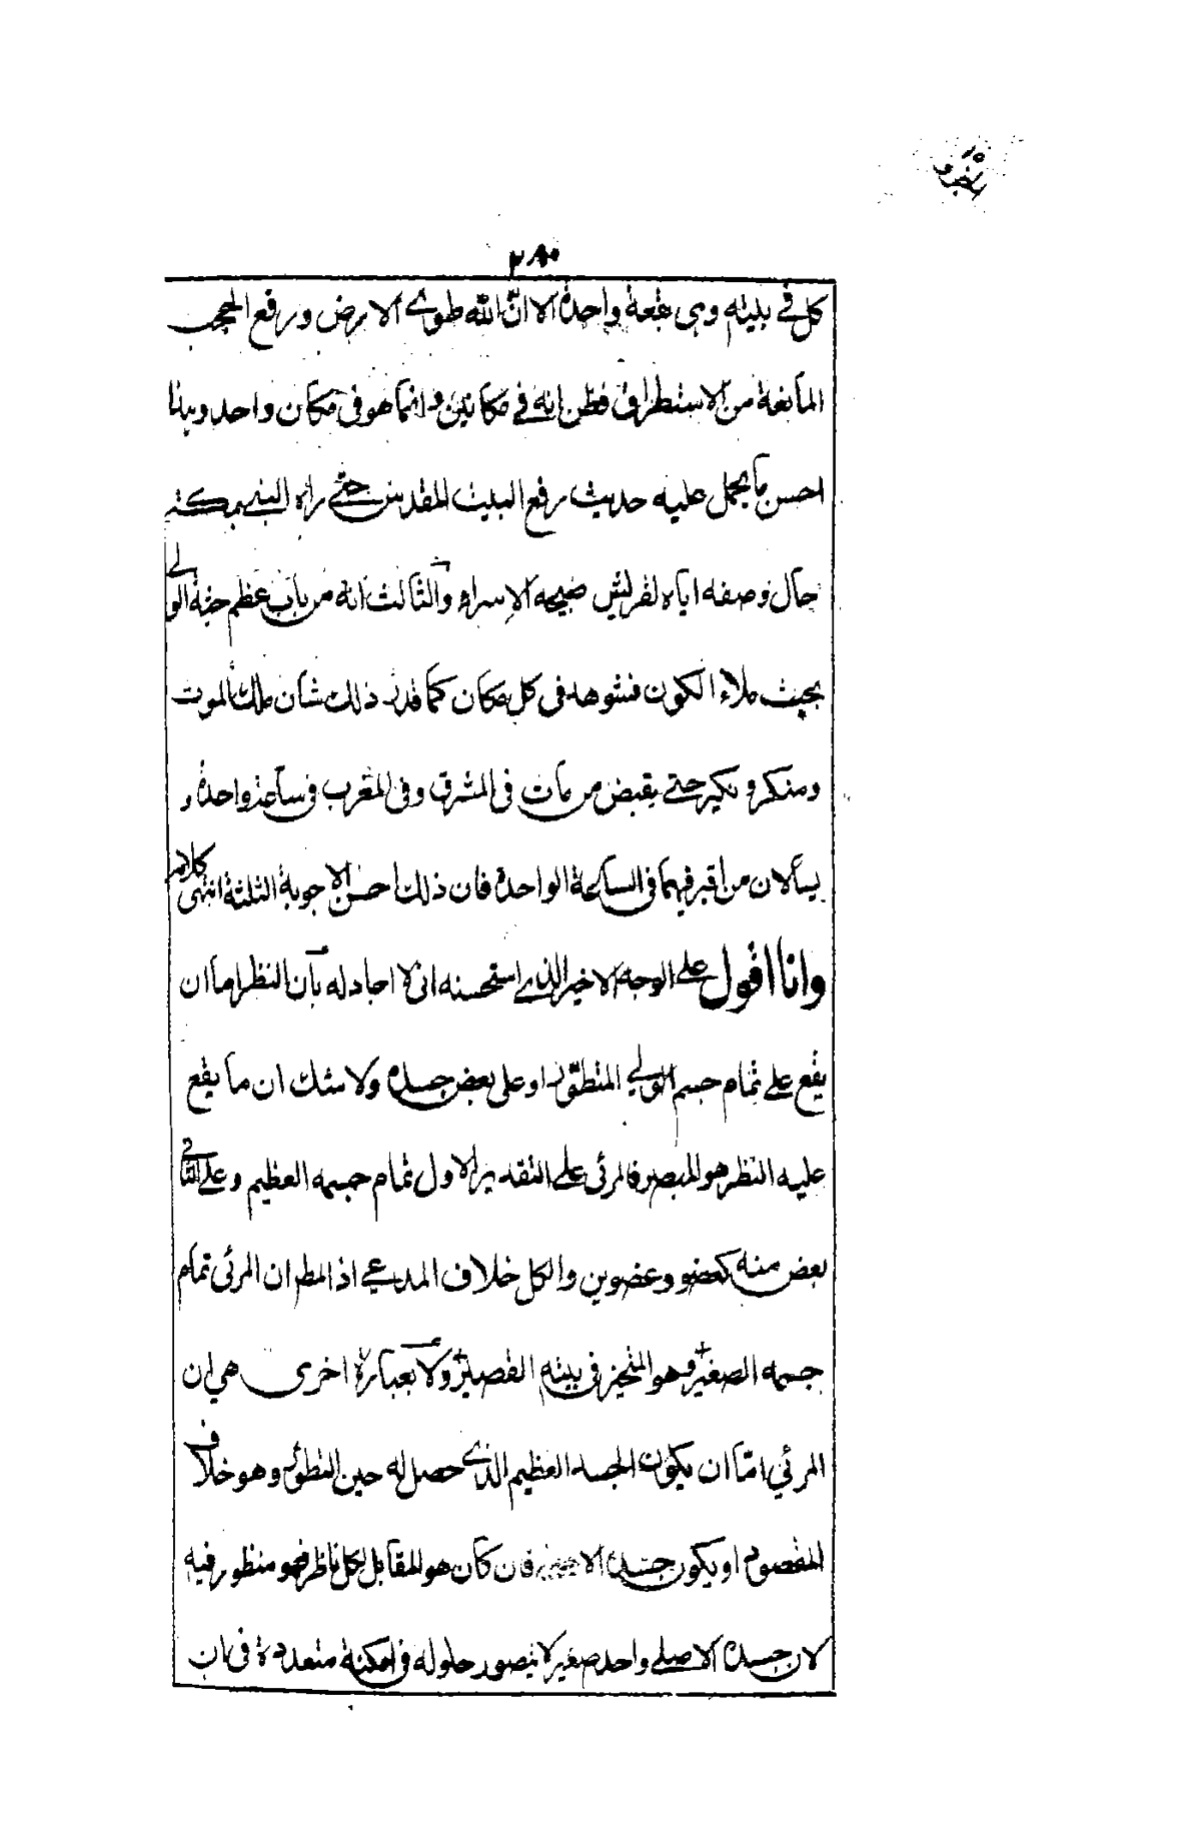 ٢٨٠
كل في بيته وهي بقعة واحدة الا ان الله طوى الارض ورفع الحجب
المانعة من الاستطراق فظن انه في مكانين وانما هو في مكان واحد وهذا
احسن ما يحمل عليه حديث رفع البيت المقدس حتى راه النبي بمكة
حال وصفه اياه لقريش صبيحة الاسراء والثالث انه من باب عظم جثة الولي
بحيث ملاء الكون فشوهد في كل مكان كما قدر ذلك شأن ملك الموت
ومنكر ونكير حتى يقبض من مات في المشرق وفي المغرب في ساعة واحدة و
يسألان من اقبر فيهما في الساعة الواحدة فان ذلك احسن الاجوبة الثلثة انتهى كلامه
وانا اقول على الوجه الاخير الذي استحسنه انى لا اجادله بأن النظر اما ان
يقع على تمام جسم الولي المتطور او على بعض جسده ولا شك ان ما يقع
عليه النظر هو المبصر فالمرئى على التقدير الاول تمام جسمه العظيم وعلى الثاني
بعض منه كعضو وعضوين والكل خلاف المدعى اذ المط ان المرئى تمام
جسمه الصغير وهو المتحيز في بيته القصير ولا بعبارة اخرى هي ان
المرئي امّا ان يكون الجسد العظيم الذي حصل له حين التطور وهو خلاف
المقصود او يكون جسده فان كان هو المقابل لكل ناظر فهو منظور فيه
لان جسده الاصلى واحد صغير لا يتصور حلوله في امكنة متعددة في ان